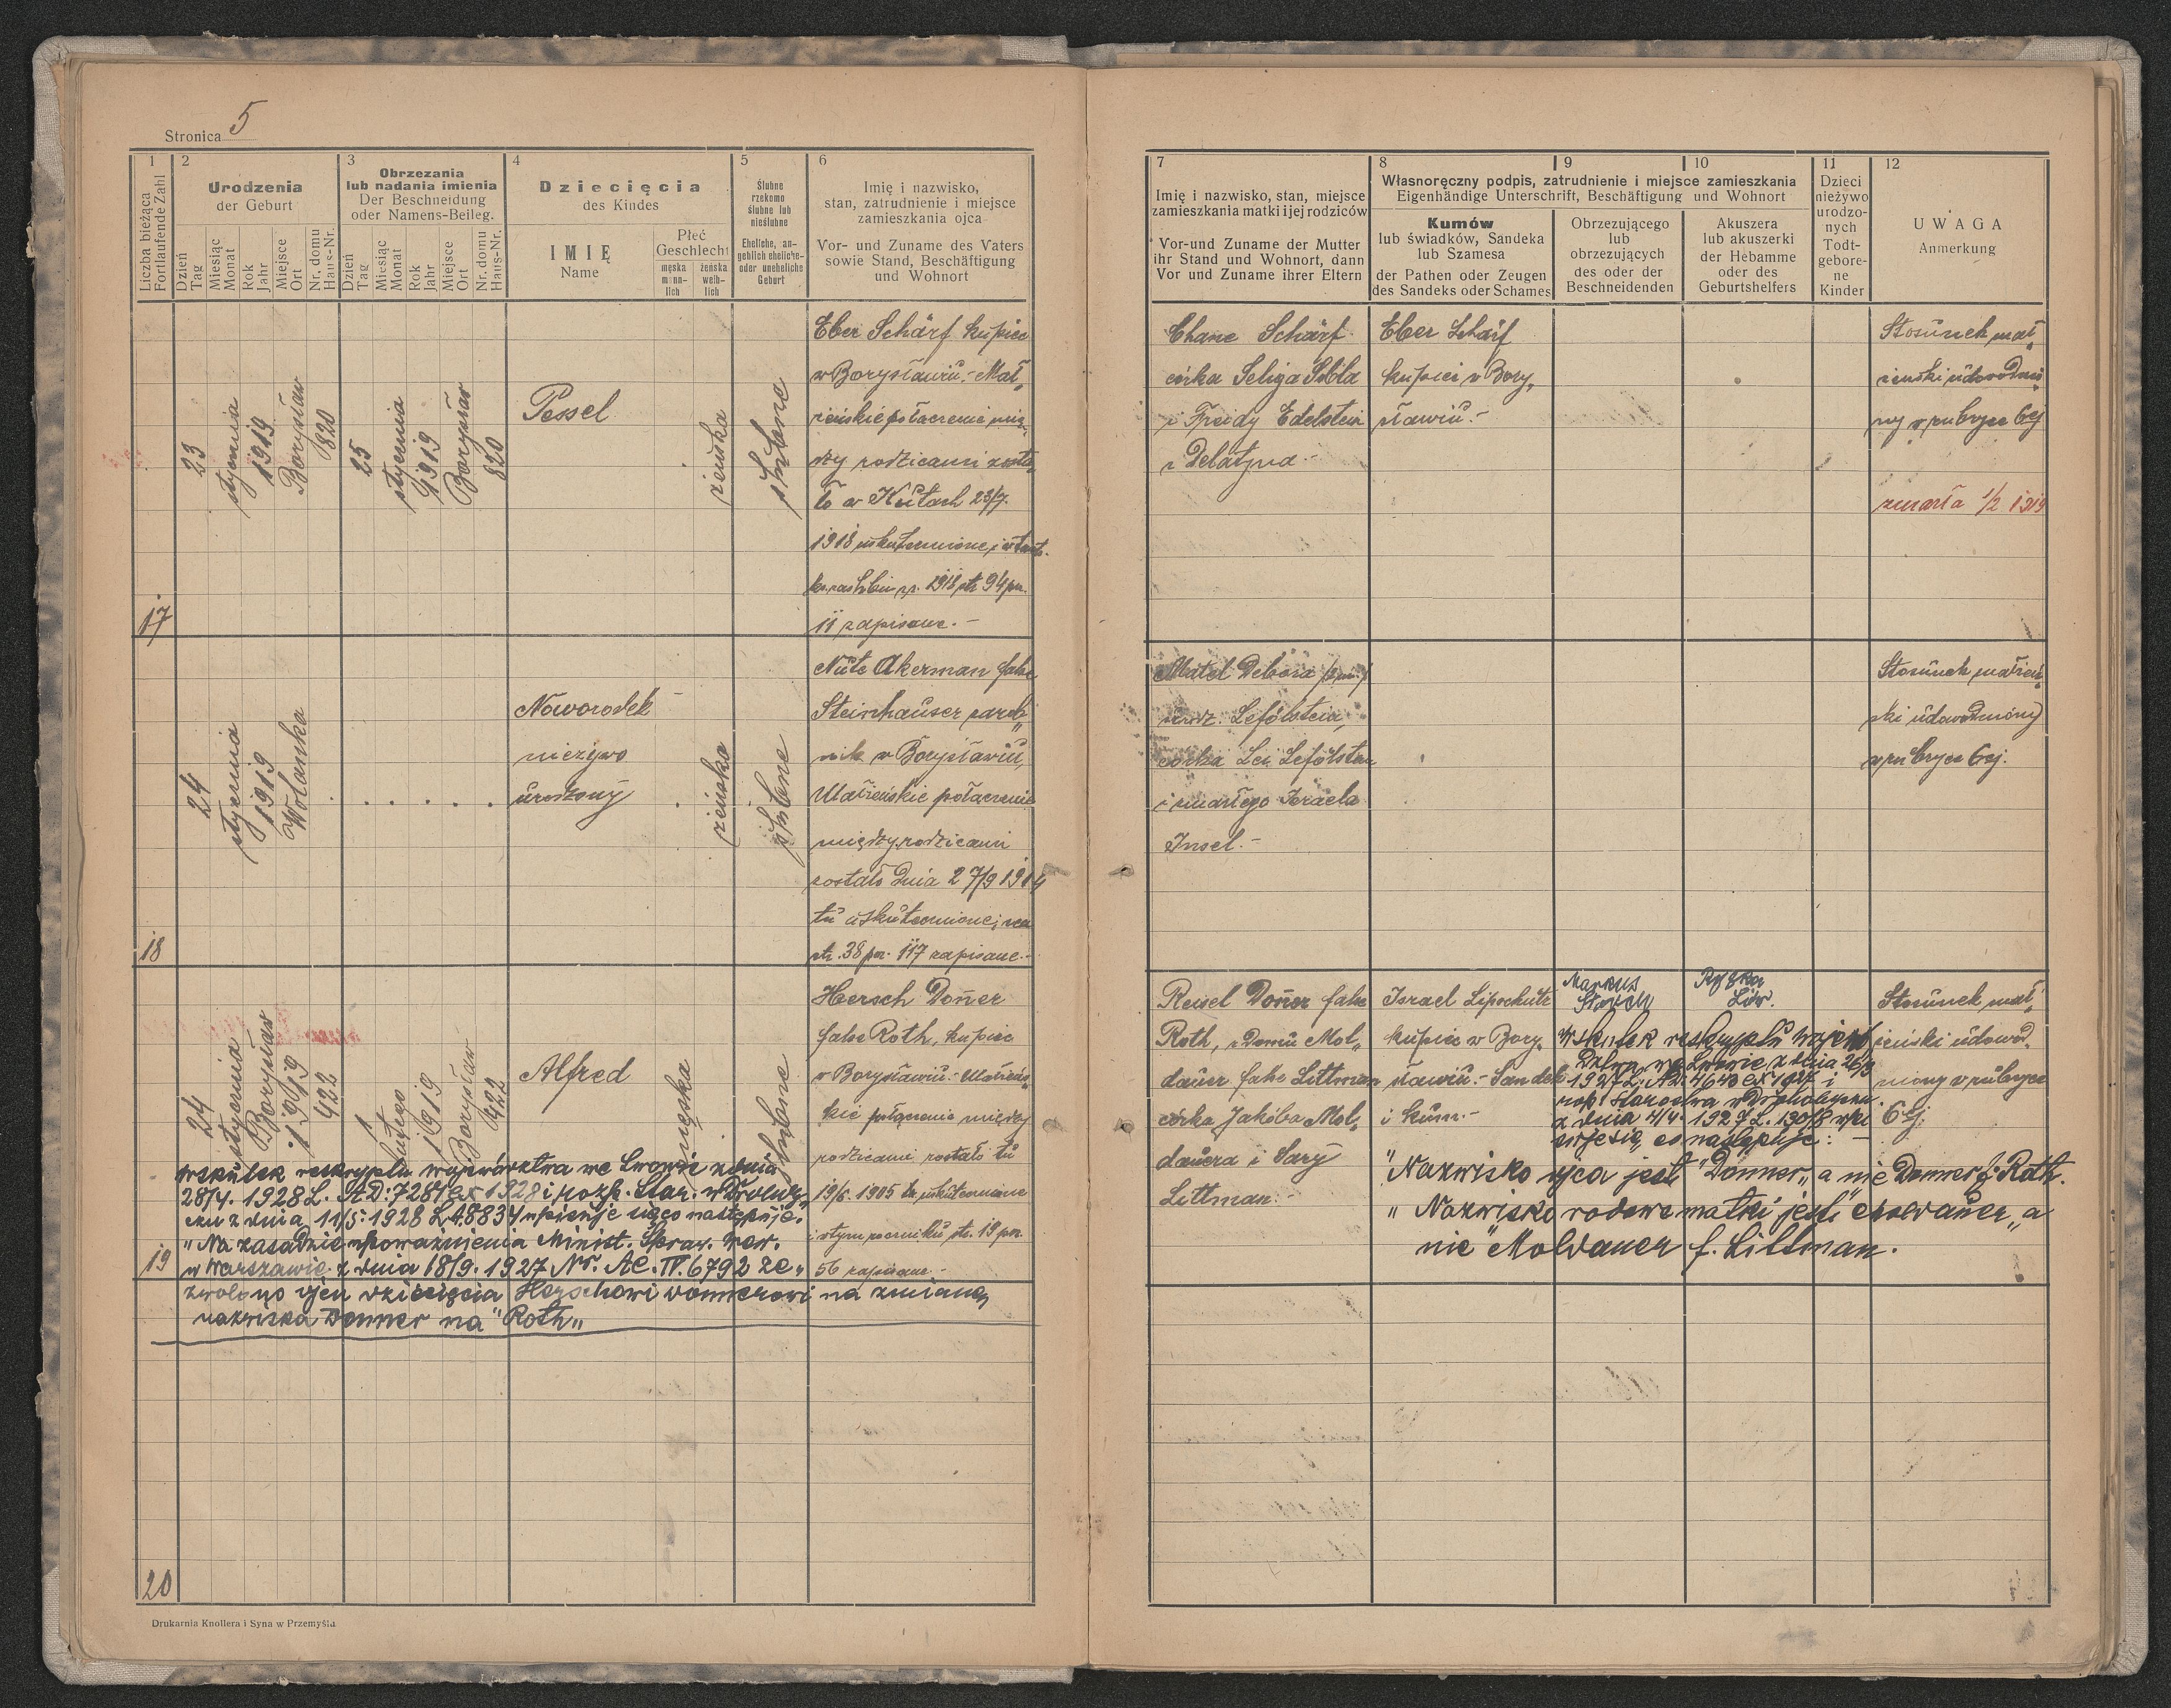 Stronica 5
1
Liczba bieżąca
Fortlaufende Zahl
2
Urodzenia
der Geburt
Dzień
Tag
Miesiąc
Monat
Rok
Jahr
Miejsce
Ort
Nr. domu
Haus-Nr.
3
Obrzezania
lub nadania imienia
Der Beschneidung
oder Namens-Beileg.
Dzień
Tag
Miesiąc
Monat
Rok
Jahr
Miejsce
Ort
Nr. domu
Haus-Nr.
4
Dziecięcia
des Kindes
IMIĘ
Name
Płeć
Geschlecht
męska
männ-
lich
żeńska
weib-
lich
5
Ślubne
rzekomo
ślubne lub
nieślubne
Eheliche, an-
geblich eheliche-
oder uneheliche
Geburt
6
Imię i nazwisko,
stan, zatrudnienie i miejsce
zamieszkania ojca
Vor- und Zuname des Vaters
sowie Stand, Beschäftigung
und Wohnort
7
Imię i nazwisko, stan, miejsce
zamieszkania matki i jej rodziców
Vor-und Zuname der Mutter
ihr Stand und Wohnort, dann
Vor und Zuname ihrer Eltern
Własnoręczny podpis, zatrudnienie i miejsce zamieszkania
Eigenhändige Unterschrift, Beschäftigung und Wohnort
8
Kumów
lub świadków, Sandeka
lub Szamesa
der Pathen oder Zeugen
des Sandeks oder Schames
9
Obrzezującego
lub
obrzezujących
des oder der
Beschneidenden
10
Akuszera
lub akuszerki
der Hebamme
oder des
Geburtshelfers
11
Dzieci
nieżywo
urodzo-
nych
Todt-
gebore-
ne
Kinder
12
UWAGA
Anmerkung
17
23
stycznia
1919
Borysław
820
25
stycznia
1919
Borysław
820
Pessel
żeńska
ślubne
Eber Schärf kupiec
w Borysławiu.- Mał„
żeńskie połączenie mię„
dzy rodzicami zosta„
ło w Kutach 23/7.
1918 uskutecznione i w tamt.
ks. zaślubin r. 1918 str 94 poz.
11 zapisane.-
Chane Schärf
córka Seliga Sobla
i Freidy Edelstein
z Delatyna.-
Eber Schärf
kupiec w Bory„
sławiu.-
Stosunek mał„
żeński udowodnio„
ny w rubryce 6ej
zmarła 1/2 1919
18
24
stycznia
1919
Wolanka
Noworodek
nieżywo
urodzony
żeńska
ślubne
Nute Akerman false
Steinhauser zarob„
nik w Borysławiu,
Małżeńskie połączenie
między rodzicami
zostało dnia 27/9 1914
tu uskutecznione i na
str. 38 poz. 117 zapisane.-
Matel Debora
urodz. Lefölstein,
córka Lei Lefölstein
i zmarłego Israela
Insel.-
Stosunek małżeń„
ski udowodniony
w rubryce 6ej.
19
24
stycznia
Borysław
1919
422
1
lutego
1919
Borysław
422
Alfred
męska
ślubne
Hersch Donner
false Roth, kupiec
w Borysławiu.- Małżeń„
skie połączenie między
rodzicami zostało tu
19/6. 1905 uskutecznione
i w tym roczniku str. 19 poz.
56 zapisane.-
Reisel Donner false
Roth, z domu Mol„
dauer false Littman
córka Jakóba Mol„
dauera i Sary
Littman.-
Israel Lipschutz
kupiec w Bory„
sławiu.- Sandek
i kum.-
Markus
Ryfka
Löw.
Stosunek mał„
żeński udowod„
niony w rubryce
6ej.
Wskutek reskryptu Wojewó
dztwa we Lwowie z dnia 26/3
1927 L: AD: 4640 ex 1927 i
rozp. Starostwa w Drohobyczu
z dnia 4/4. 1927 L. 13018 wpi
suje się, co następuje:-
"Nazwisko ojca jest "Donner„ a nie Donner f. Roth.
„Nazwisko rodowe matki jest „Moldauer„ a
nie "Moldauer f. Littman.
Wskutek reskryptu województwa we Lwowie z dnia
28/4. 1928 L. AD: 7281 ex 1928 i rozp. Star. w Drohoby„
czu z dnia 11/5. 1928 L 48834 wpisuje się co następuje:
"Na zasadzie upoważnienia Minist. Spraw. Wew.
w Warszawie z dnia 18/9. 1927 Nr. AC. IV. 6792 ze„
zwolono ojcu dziecięcia Herschowi Donnerowi na zmianę
nazwiska Donner na "Roth„
20
Drukarnia Knollera i Syna w Przemyślu